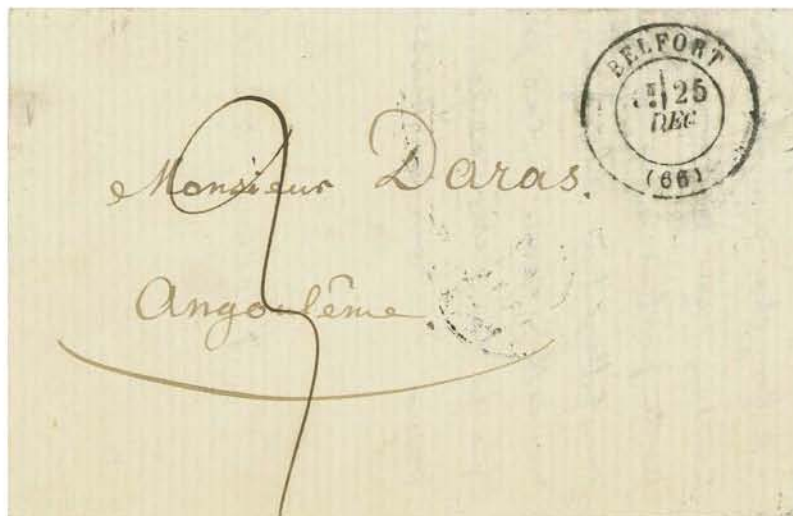 BELFORT
25
DEC
(66)
Monsieur Daras.
Angoulême